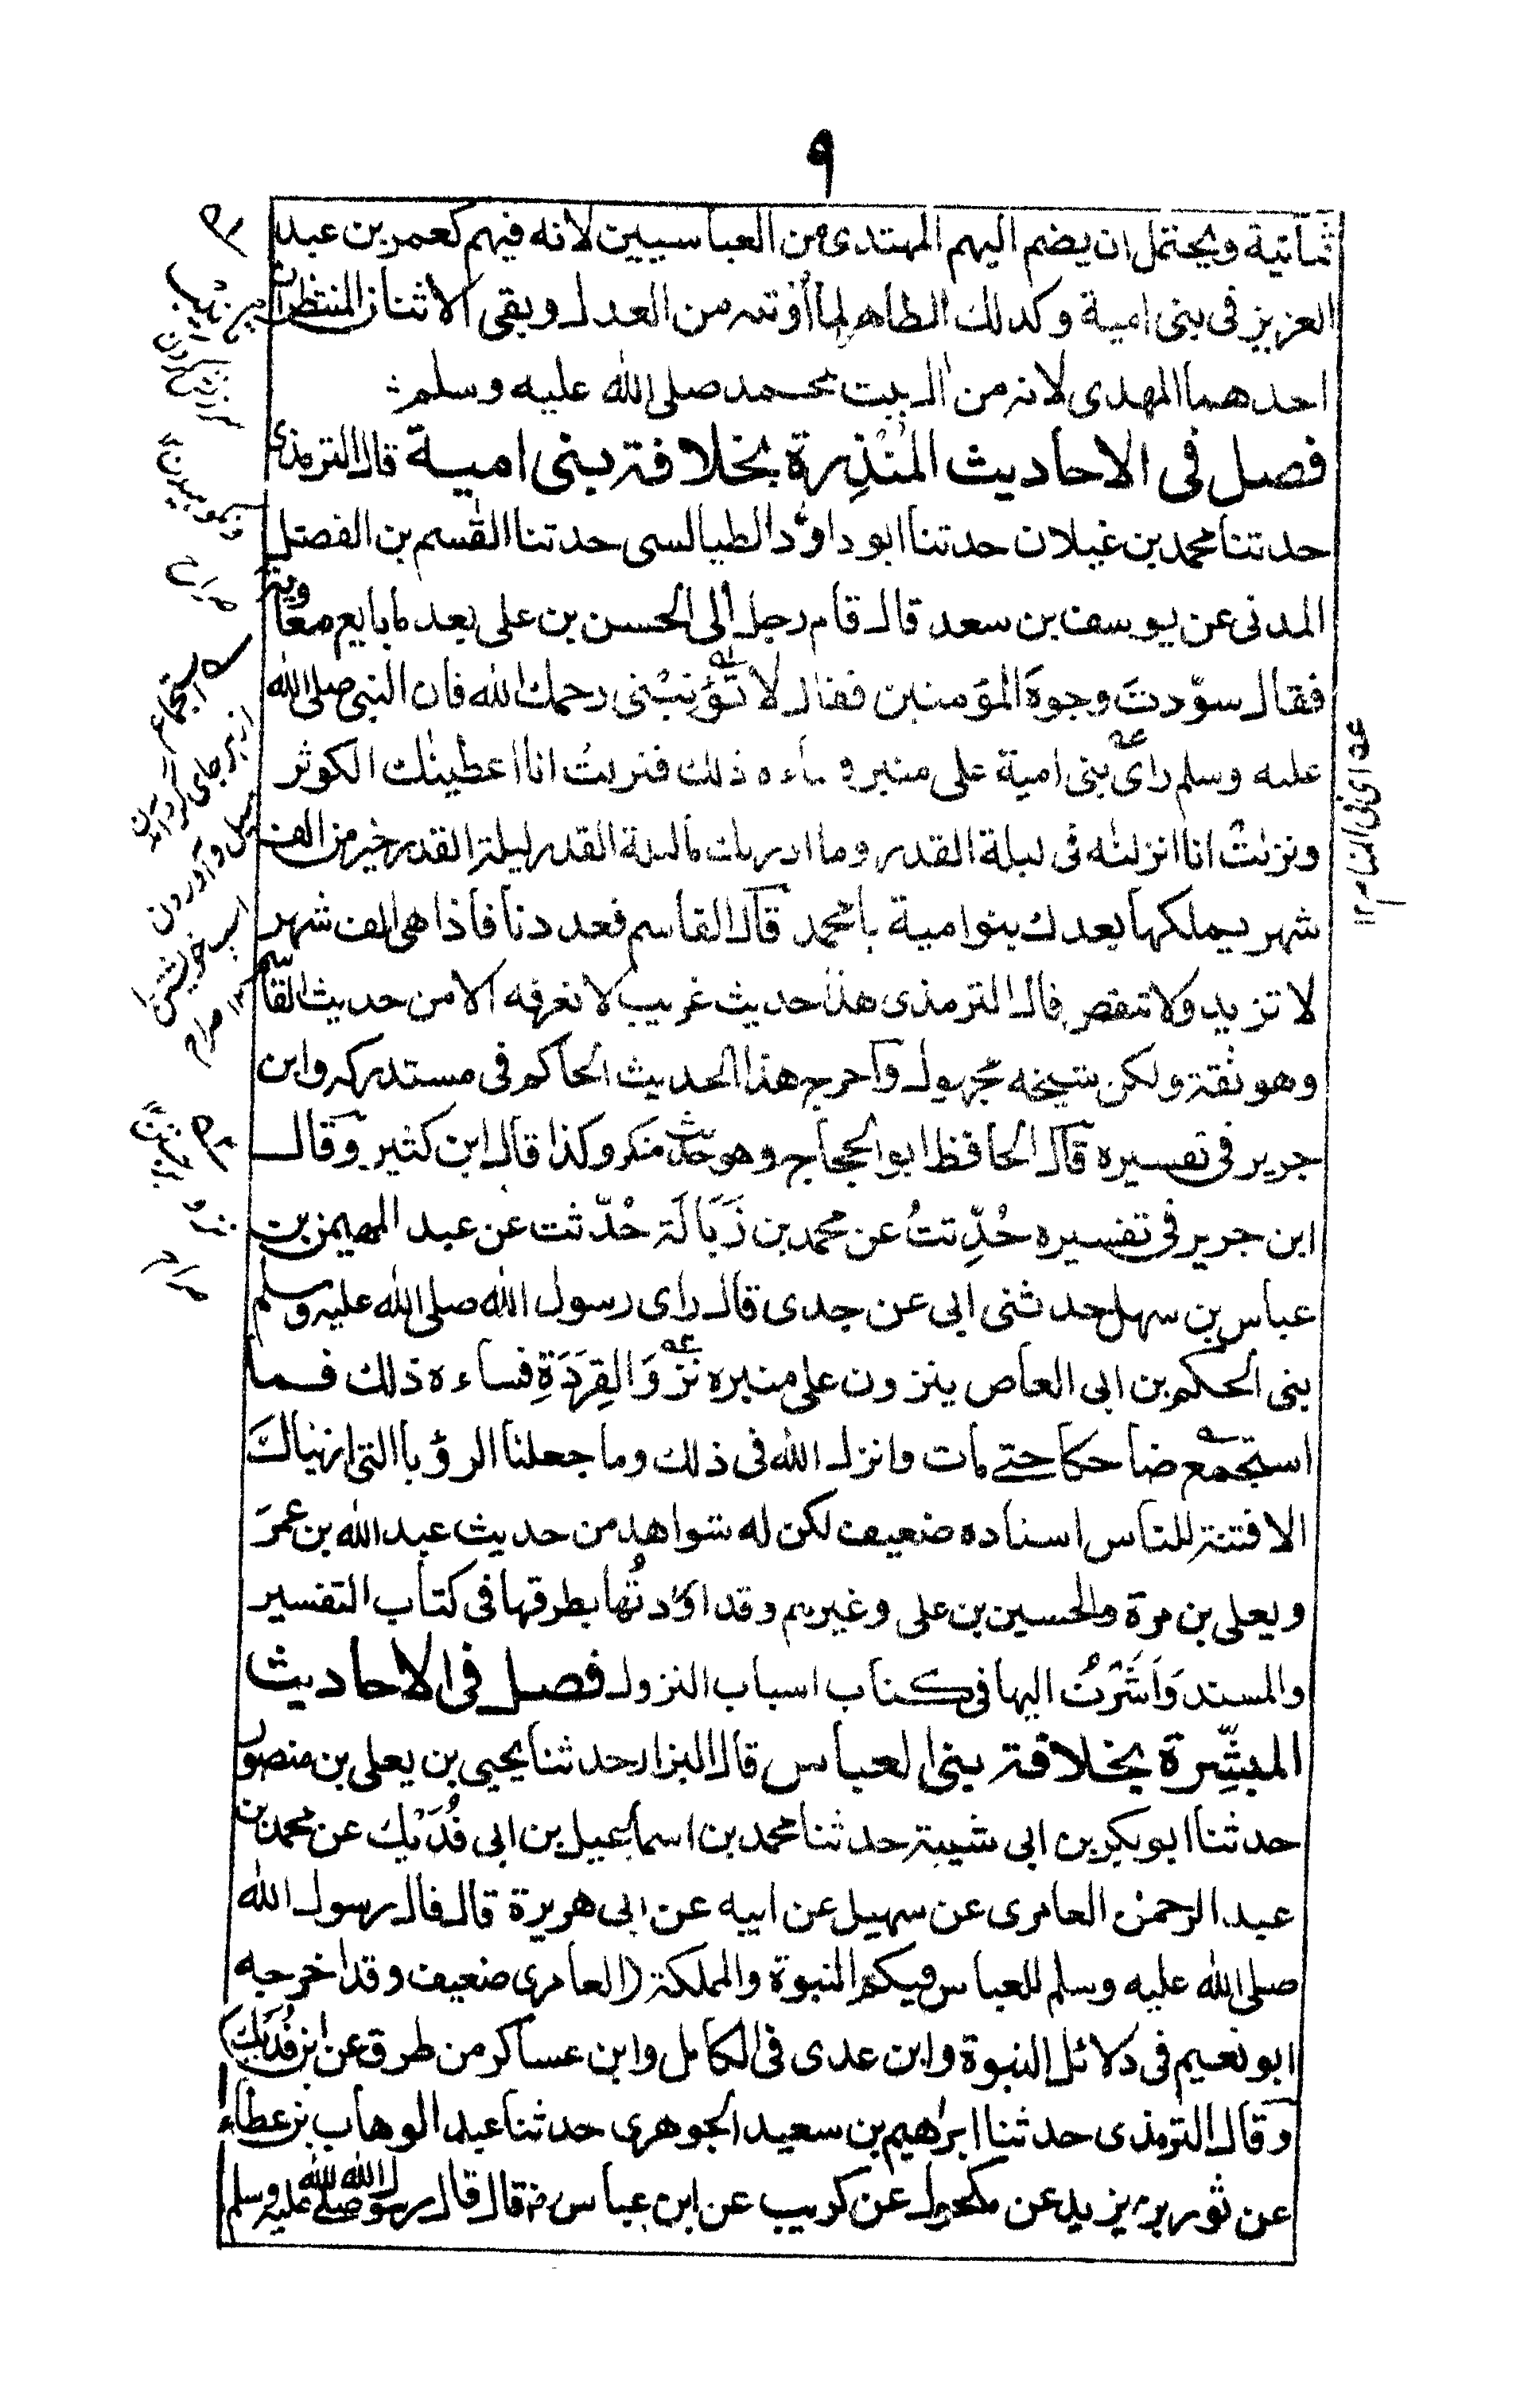 ٩
ثمانية ويحتمل ان يضم اليهم المهتدى من العباسيين لانه فيهم كعمر بن عبد
العزيز فى بنى امية وكذلك الطاهر لما أوتيه من العدل وبقى الاثنان المنتظران
احدهما المهدى لانه من ال بيت محمد صلى الله عليه وسلم
فصل فى الاحاديث المُنْذِرة بخلافة بنى امية قال الترمذى
حدثنا محمد بن غيلان حدثنا ابو داؤد الطيالسى حدثنا القسم بن الفضل
المدنى عن يوسف بن سعد قال قام رجل الى الحسن بن على بعد مابايع معاوية
فقال سوّدتَ وجوهَ المؤمنين فقال لا تؤنِّبْنى رحمك الله فان النبى صلى الله
عليه وسلم راى بنى امية على منبره فساءه ذلك فنزلت انا اعطينٰك الكوثر
ونزلتْ انا انزلنٰه فى ليلة القدر وما ادريك مالیلة القدر ليلة القدر خير من الف
شهر يملكها بعدك بنوامية يا محمد قال القاسم فعددنا فاذا هى الف شهر
لا تزيد ولا تنقص قال الترمذى هذا حديث غريب لا نعرفه الا من حديث القاسم
وهو ثقة ولكن شيخه مجهول واخرج هذا الحديث الحاكم فى مستدركه وابن
جرير فى تفسيره قال الحافظ ابو الحجاج وهو حديث منكر وكذا قال ابن كثير وقال
ابن جرير فى تفسيره حُدِّثتُ عن محمد بن زَبَالَة حُدّثت عن عبد المهيمن بن
عباس بن سهل حدثنى ابى عن جدى قال راى رسول الله صلى الله عليه وسلم
بنى الحكم بن ابى العاص ينزون على منبره نَزْوَ القِرَدَةِ فساءه ذلك فما
استجمع ضاحكا حتے مات وانزل الله فى ذلك وما جعلنا الرؤيا التى ارينٰك
الا فتنة للناس اسناده ضعيف لكن له شواهد من حديث عبد الله بن عمرَ
ويعلى بن مرة والحسين بن على وغيرهم وقد اوردتُها بطرقها فى كتاب التفسير
والمسند وَاَشَرْتُ اليها فى كتاب اسباب النزول فصل فى الاحاديث
المبشِّرة بخلافة بنى العباس قال البزار حدثنا يحيى بن يعلى بن منصور
حدثنا ابو بكر بن ابى شيبة حدثنا محمد بن اسماعيل بن ابى فُدَيْك عن محمد بن
عبد الرحمٰن العامرى عن سهيل عن ابيه عن ابى هريرة قال قال رسول الله
صلى الله عليه وسلم للعباس فيكم النبوة والمملكة (العامرى ضعيف وقد اخرجه
ابو نعيم فى دلائل النبوة وابن عدى فى الكامل وابن عساكر من طرق عن ابن فُدَيك)
وقال الترمذى حدثنا ابراهيم بن سعيد الجوهرى حدثنا عبد الوهاب بن عطاء
عن ثور بن يزيد عن مكحول عن كريب عن ابن عباس رض قال قال رسول الله صلے الله عليه وسلم
عه اى فى المنام ١٢
استجماع
از هر جاى گرد آمدن
سيل و آوردن
اسپ خويشتن را
١٢ صراح